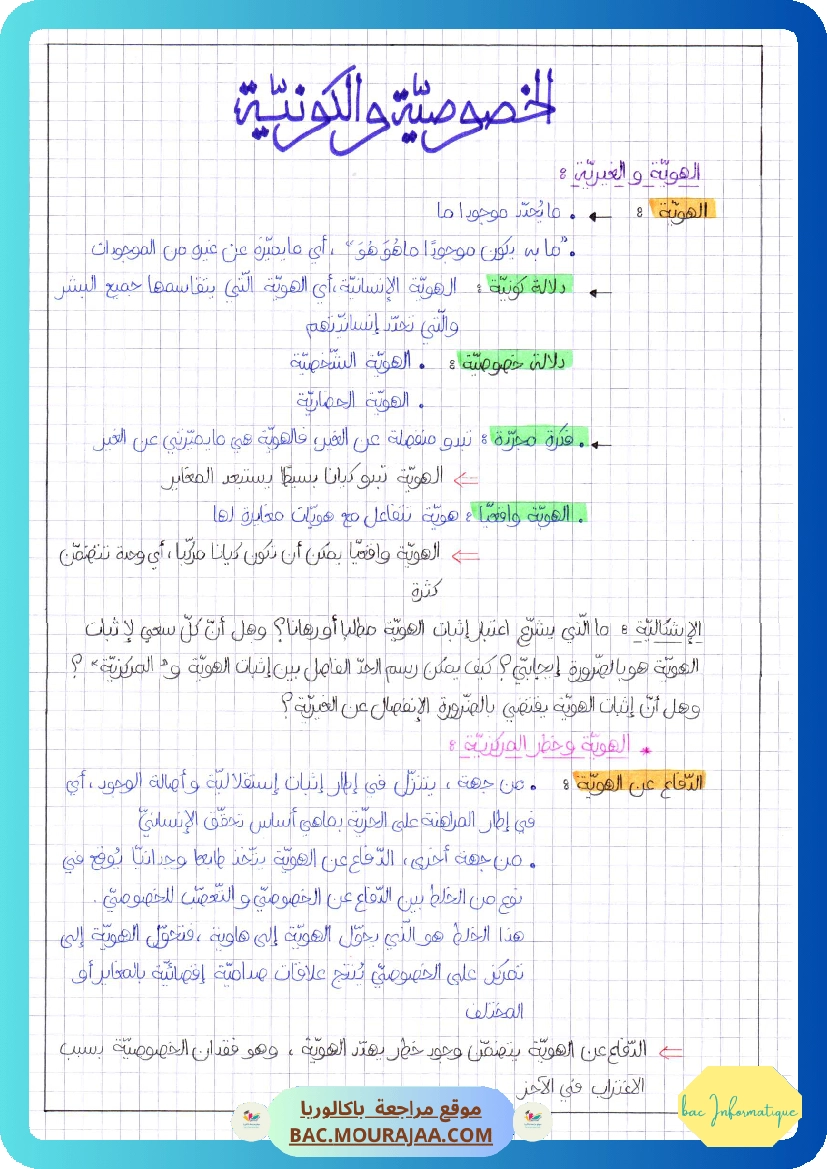 الخصوصيّة والكونيّة
الهويّة والغيريّة :
الهويّة : ← • ما يُحدّد موجودا ما
• "ما به يكون موجودًا ما هُوَ هُوَ"، أي ما يميّزه عن غيره من الموجودات
← دلالة كونيّة : الهويّة الإنسانيّة، أي الهويّة الّتي يتقاسمها جميع البشر
والّتي تحدّد إنسانيّتهم
دلالة خصوصيّة : • الهويّة الشّخصيّة
• الهويّة الحضاريّة
← • فكرة مجرّدة : تبدو منفصلة عن الغير، فالهويّة هي ما يميّزني عن الغير
⇐ الهويّة تبدو كيانا بسيطا يستبعد المغاير
• الهويّة واقعيّا : هويّة تتفاعل مع هويّات مغايرة لها
⇐ الهويّة واقعيّا يمكن أن تكون كيانا مركّبا، أي وحدة تتضمّن
كثرة
الإشكاليّة : ما الّذي يشرّع اعتبار إثبات الهويّة مطلبا أو رهانا؟ وهل أنّ كلّ سعي لإثبات
الهويّة هو بالضّرورة إيجابيّ؟ كيف يمكن رسم الحدّ الفاصل بين إثبات الهويّة و"المركزيّة" ؟
وهل أنّ إثبات الهويّة يقتضي بالضّرورة الإنفصال عن الغيريّة؟
* الهويّة وخطر المركزيّة :
الدّفاع عن الهويّة : • من جهة، يتنزّل في إطار إثبات إستقلاليّة وأصالة الوجود، أي
في إطار المراهنة على الحرّيّة بما هي أساس تحقّق الإنسانيّ
• من جهة أخرى، الدّفاع عن الهويّة يتّخذ طابعا وجدانيّا يُوقع في
نوع من الخلط بين الدّفاع عن الخصوصيّ والتّعصّب للخصوصيّ.
هذا الخلط هو الّذي يحوّل الهويّة إلى هاوية، فتتحوّل الهويّة إلى
تمركز على الخصوصيّ يُنتج علاقات صداميّة إقصائيّة بالمغاير أو
المختلف
⇐ الدّفاع عن الهويّة يتضمّن وجود خطر يهدّد الهويّة، وهو فقدان الخصوصيّة بسبب
الاغتراب في الآخر
موقع مراجعة باكالوريا
BAC.MOURAJAA.COM
bac Informatique